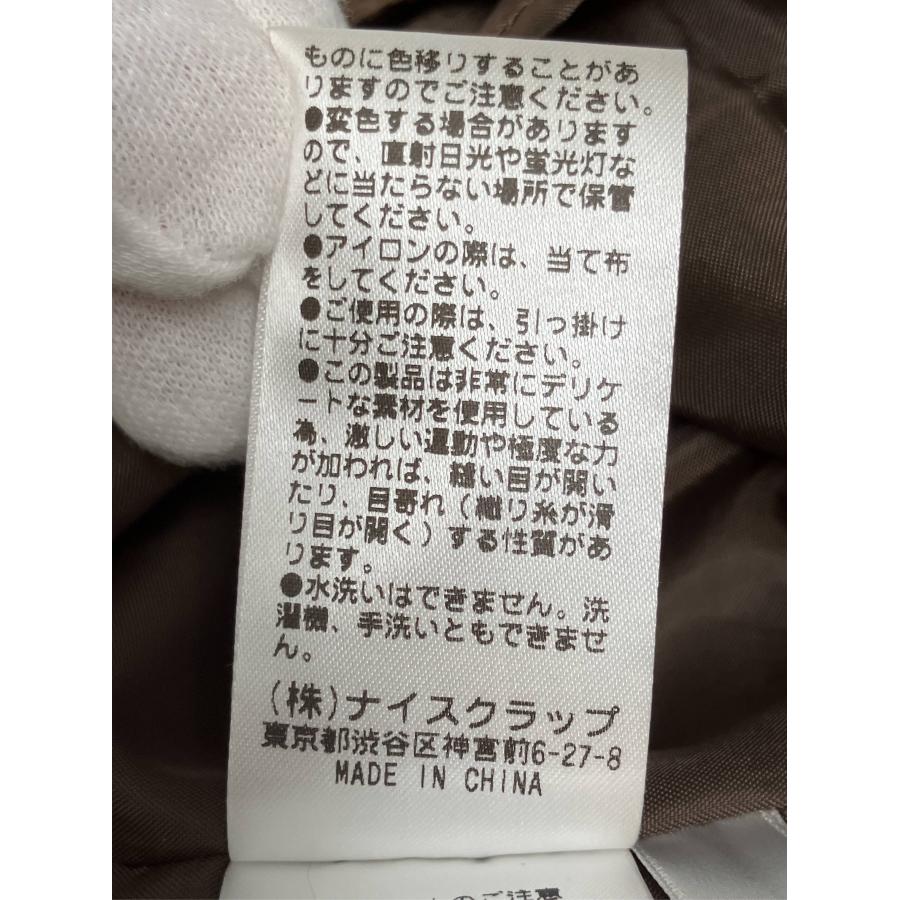 ものに色移りすることがあ
りますのでご注意ください。
●変色する場合があります
ので、直射日光や蛍光灯な
どに当たらない場所で保管
してください。
●アイロンの際は、当て布
をしてください。
●ご使用の際は、引っ掛け
に十分ご注意ください。
●この製品は非常にデリケ
ートな素材を使用している
為、激しい運動や極度な力
が加われば、縫い目が開い
たり、目寄れ（織り糸が滑
り目が開く）する性質があ
ります。
●水洗いはできません。洗
濯機、手洗いともできませ
ん。
(株)ナイスクラップ
東京都渋谷区神宮前6-27-8
MADE IN CHINA
のご注意